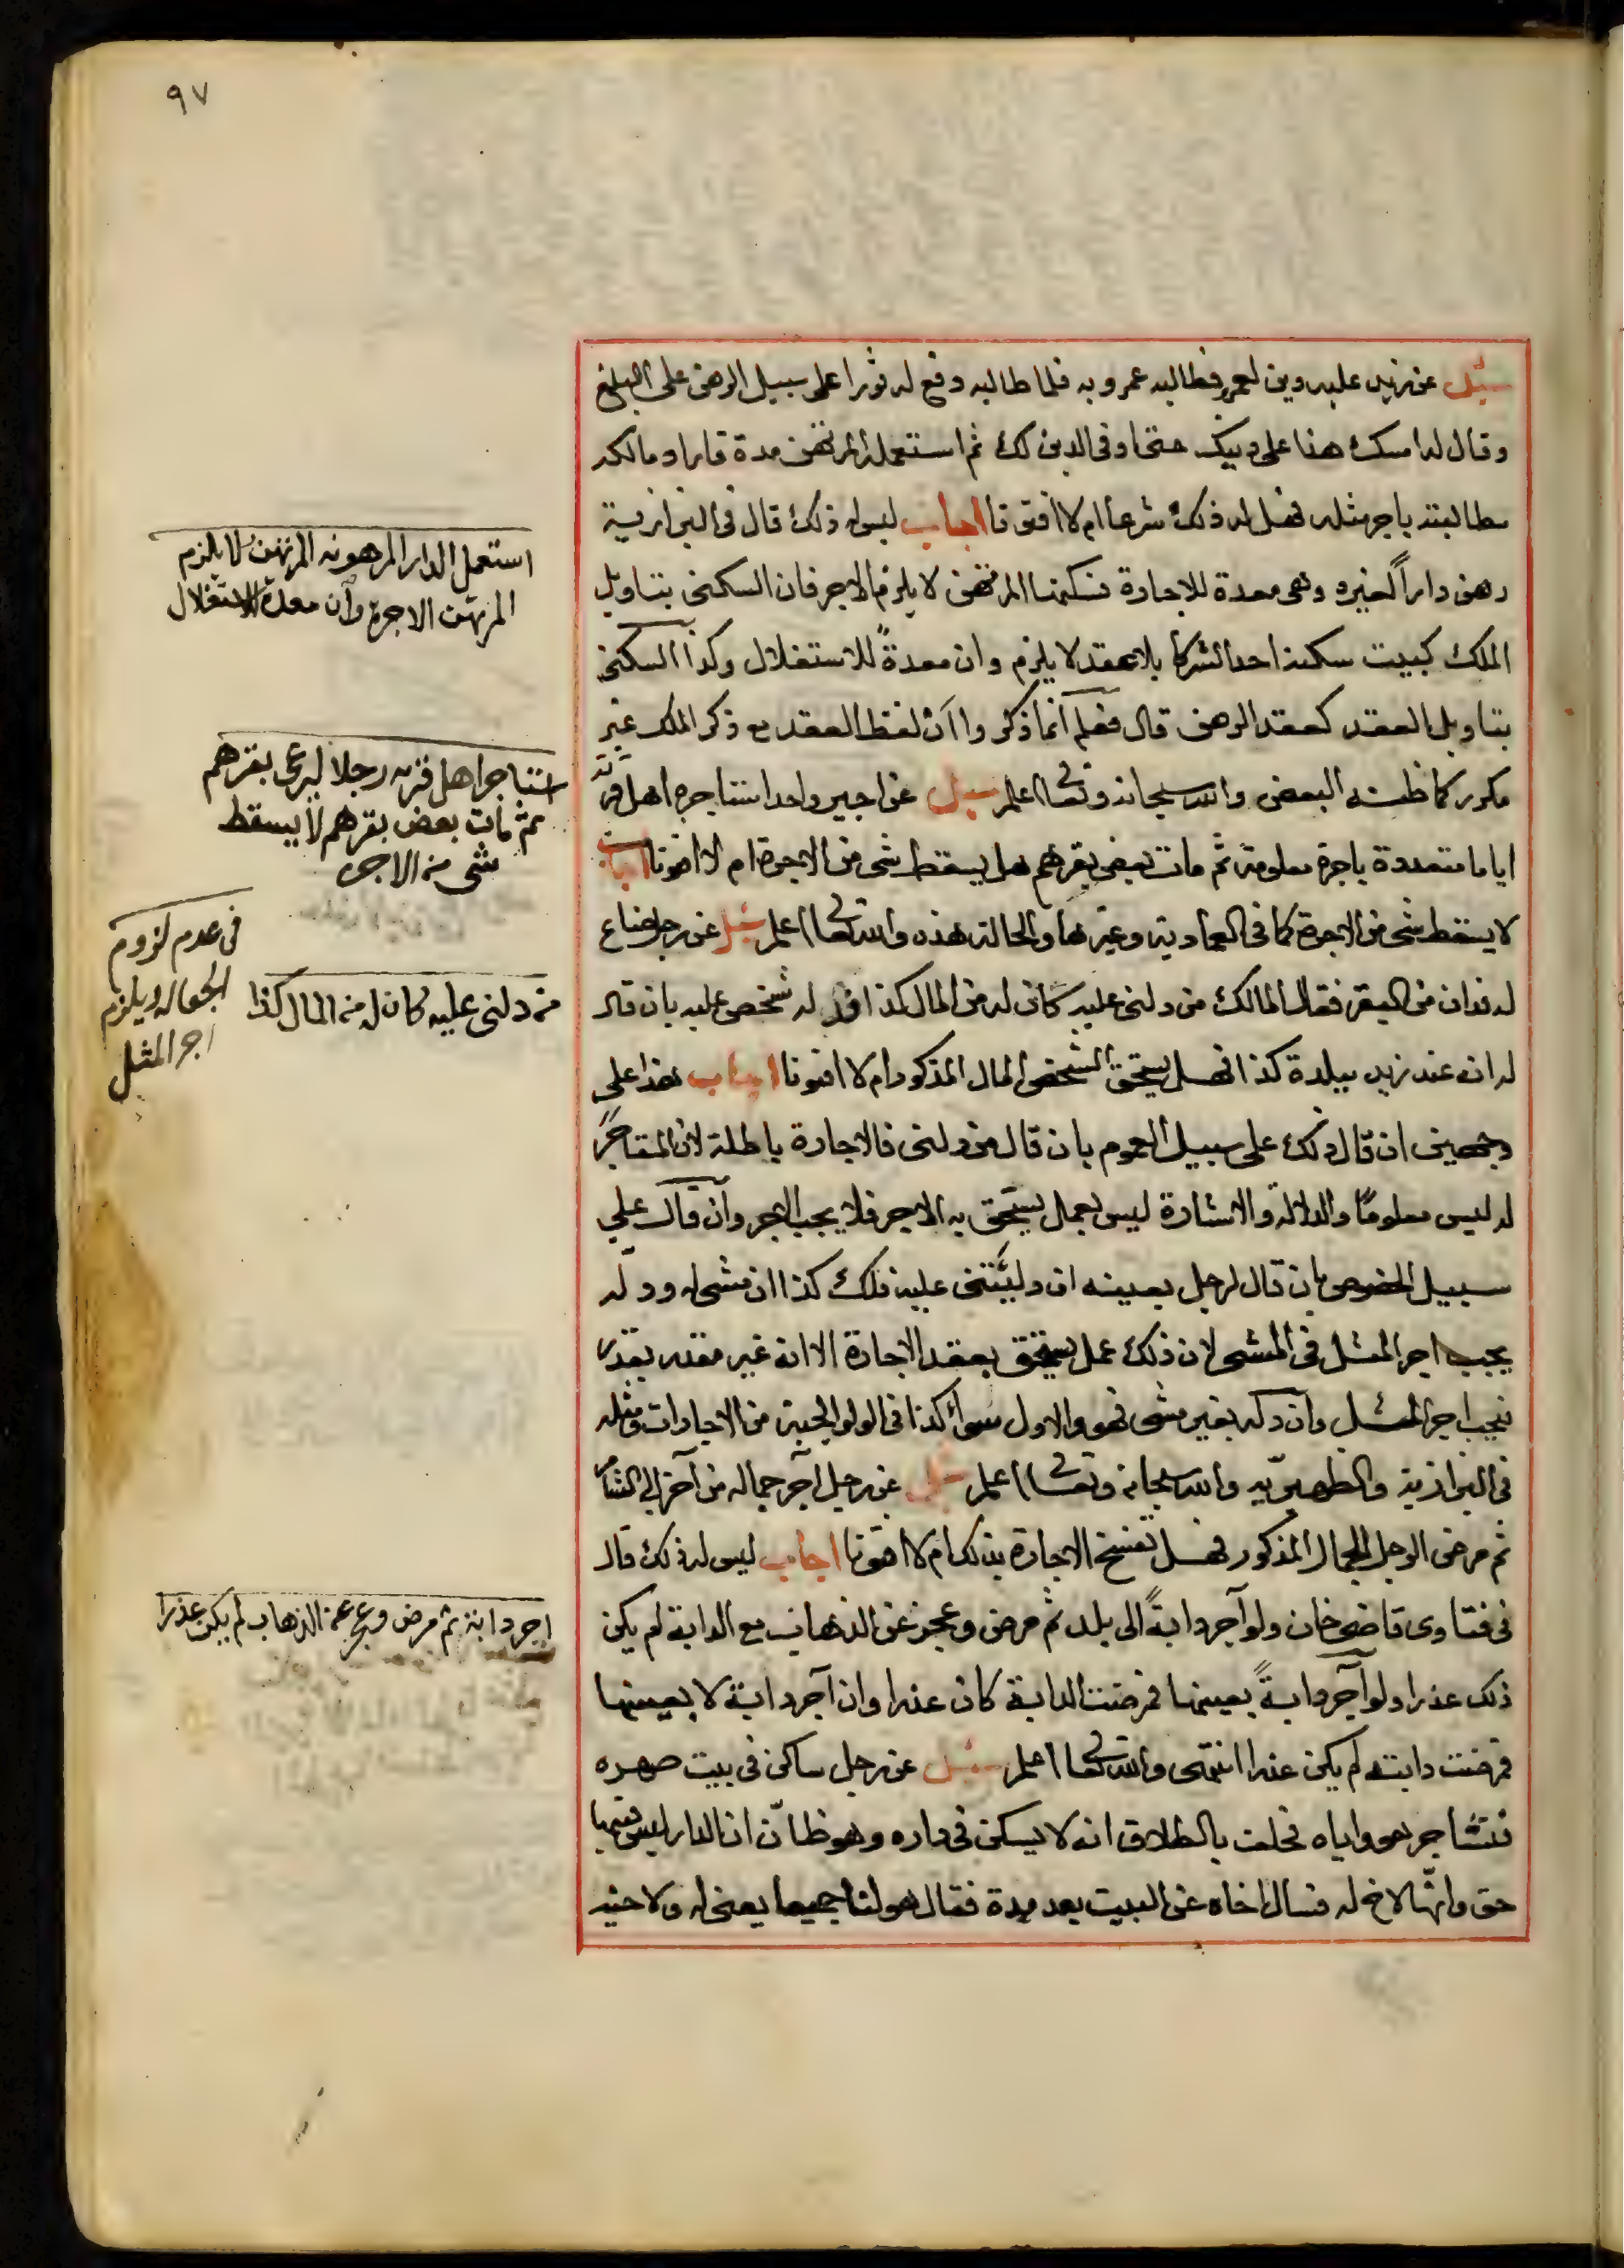 ٩٧
سئل عن زيد عليه دين لعمرو فطالبه عمرو به فلما طالبه دفع له ثورا على سبيل الرهن على المبلغ
وقال له امسك هذا على دينك حتى اوفى الدين لك ثم استعمله المرتهن مدة فاراد مالكه
مطالبته باجر مثله فهل له ذلك شرعا ام لا افتونا اجاب ليس له ذلك قال فى البزازية
رهن داراً لغيره وهى معدة للاجارة فسكنها المرتهن لا يلزم الاجر فان السكنى بتاويل
الملك كبيت سكنه احد الشركا بلا عقد لا يلزم وان معدةً للاستغلال وكذا السكنى
بتاويل العقد كعقد الرهن قال فعلم انما ذكروا ان لفظ العقد مع ذكر الملك غير
مكرر كما ظنه البعض والله سبحانه وتعالى اعلم سئل عن اجير واحد استاجره اهل قرية
اياما متعددة باجرة معلومة ثم مات بعض بقرهم هل يسقط شى من الاجرة ام لا افتونا اجاب
لا يسقط شى من الاجرة كما فى العمادية وغيرها والحالة هذه والله تعالى اعلم سئل عن رجل ضاع
له فدان من البقر فقال المالك من دلنى عليه كان له من المال كذا فدل له شخص عليه بان قال
له انه عند زيد ببلدة كذا فهل يستحق الشخص المال المذكور ام لا افتونا اجاب هذا على
وجهين ان قال ذلك على سبيل العموم بان قال من دلنى فالاجارة باطلة لان المستاجر
له ليس معلومًا والدلالة والاشارة ليس بعمل يستحق به الاجر فلا يجب الاجر وان قال على
سبيل الخصوص بان قال لرجل بعينه ان دليتنى عليه فلك كذا ان مشى له ودله
يجب اجر المثل فى المشى لان ذلك عمل يستحق بعقد الاجارة الا انه غير مقدر بقدر
فيجب اجر المثل وان دله بغير مشى فهو والاول سواء كذا فى الولوالجية من الاجارات ومثله
فى البزازية والظهيريه والله سبحانه وتعالى اعلم سئل عن رجل آجر جماله من آخر الى الشام
ثم مرض الرجل الجمال المذكور فهل تفسخ الاجارة بذلك ام لا افتونا اجاب ليس له ذلك قال
فى فتاوى قاضى خان ولو آجر دابةً الى بلد ثم مرض وعجز عن الذهاب مع الدابة لم يكن
ذلك عذرا ولو آجر دابةً بعينها فمرضت الدابة كان عذرا وان آجر دابة لا بعينها
فمرضت دابته لم يكن عذرا انتهى والله تعالى اعلم سئل عن رجل ساكن فى بيت صهره
فتشاجر هو واياه فحلف بالطلاق انه لا يسكن فى داره وهو ظانّ ان الدار ليس فيها
حق وانها لاخ له فسال اخاه عن البيت بعد مدة فقال هو لنا جميعا يعنى له ولاخيه
استعمل الدار المرهونه المرتهن لا يلزم
المرتهن الاجرة وان معدة للاستغلال
استاجر اهل قريه رجلا ليرعى بقرهم
ثم مات بعض بقرهم لا يسقط
شى من الاجره
من دلنى عليه كان له من المال كذا
فى عدم لزوم
الجعاله ويلزم
اجر المثل
اجر دابة ثم مرض وعجز عن الذهاب لم يكن عذرا